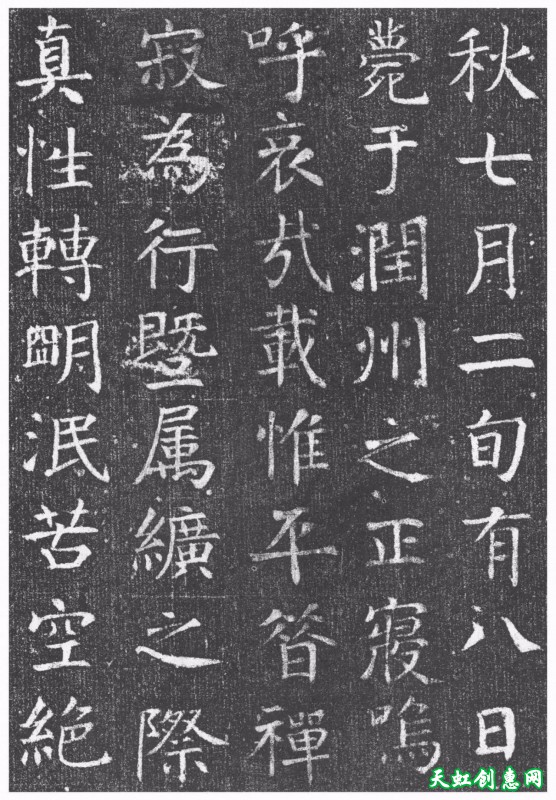 秋七月二旬有八日
薨于潤州之正寢嗚
呼哀㢤載惟平昝禪
寂為行暨属纊之際
真性轉朙泯苦空絶
天虹创惠网